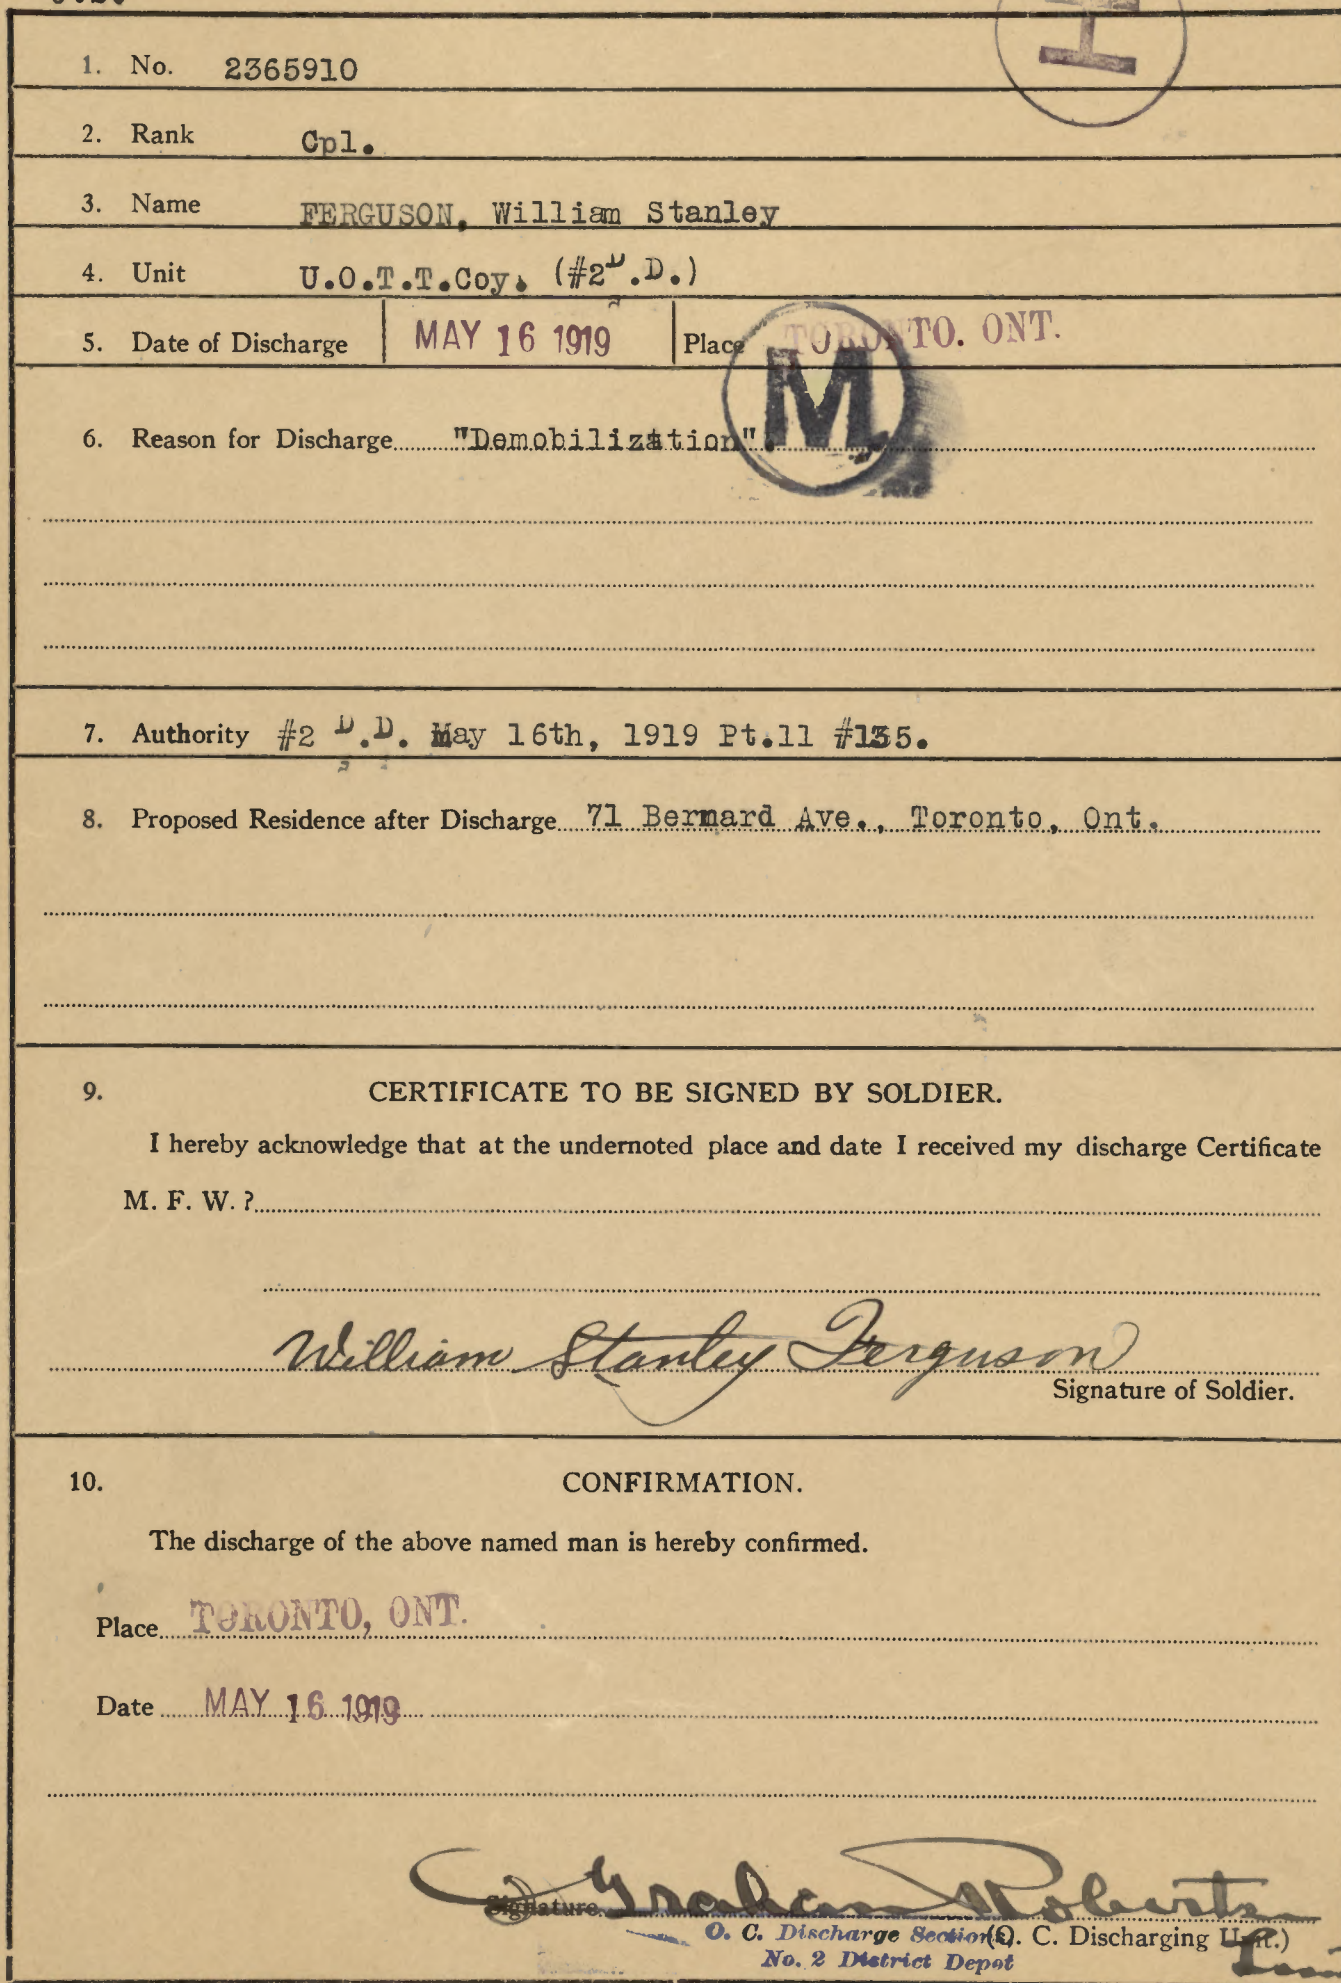 H
1. No. 2365910
2. Rank Cpl.
3. Name FERGUSON, William Stanley
4. Unit U.O.T.T.Coy. (#2 D.D.)
5. Date of Discharge MAY 16 1919 Place TORONTO. ONT.
M
6. Reason for Discharge "Demobilization".
7. Authority #2 D.D. May 16th, 1919 Pt.11 #135.
8. Proposed Residence after Discharge 71 Bernard Ave., Toronto, Ont.
9. CERTIFICATE TO BE SIGNED BY SOLDIER.
I hereby acknowledge that at the undernoted place and date I received my discharge Certificate
M. F. W. ?
William Stanley Ferguson
Signature of Soldier.
10. CONFIRMATION.
The discharge of the above named man is hereby confirmed.
Place TORONTO, ONT.
Date MAY 16 1919
Signature Graham Roberts
O. C. Discharge Section (O. C. Discharging Unit.)
No. 2 District Depot